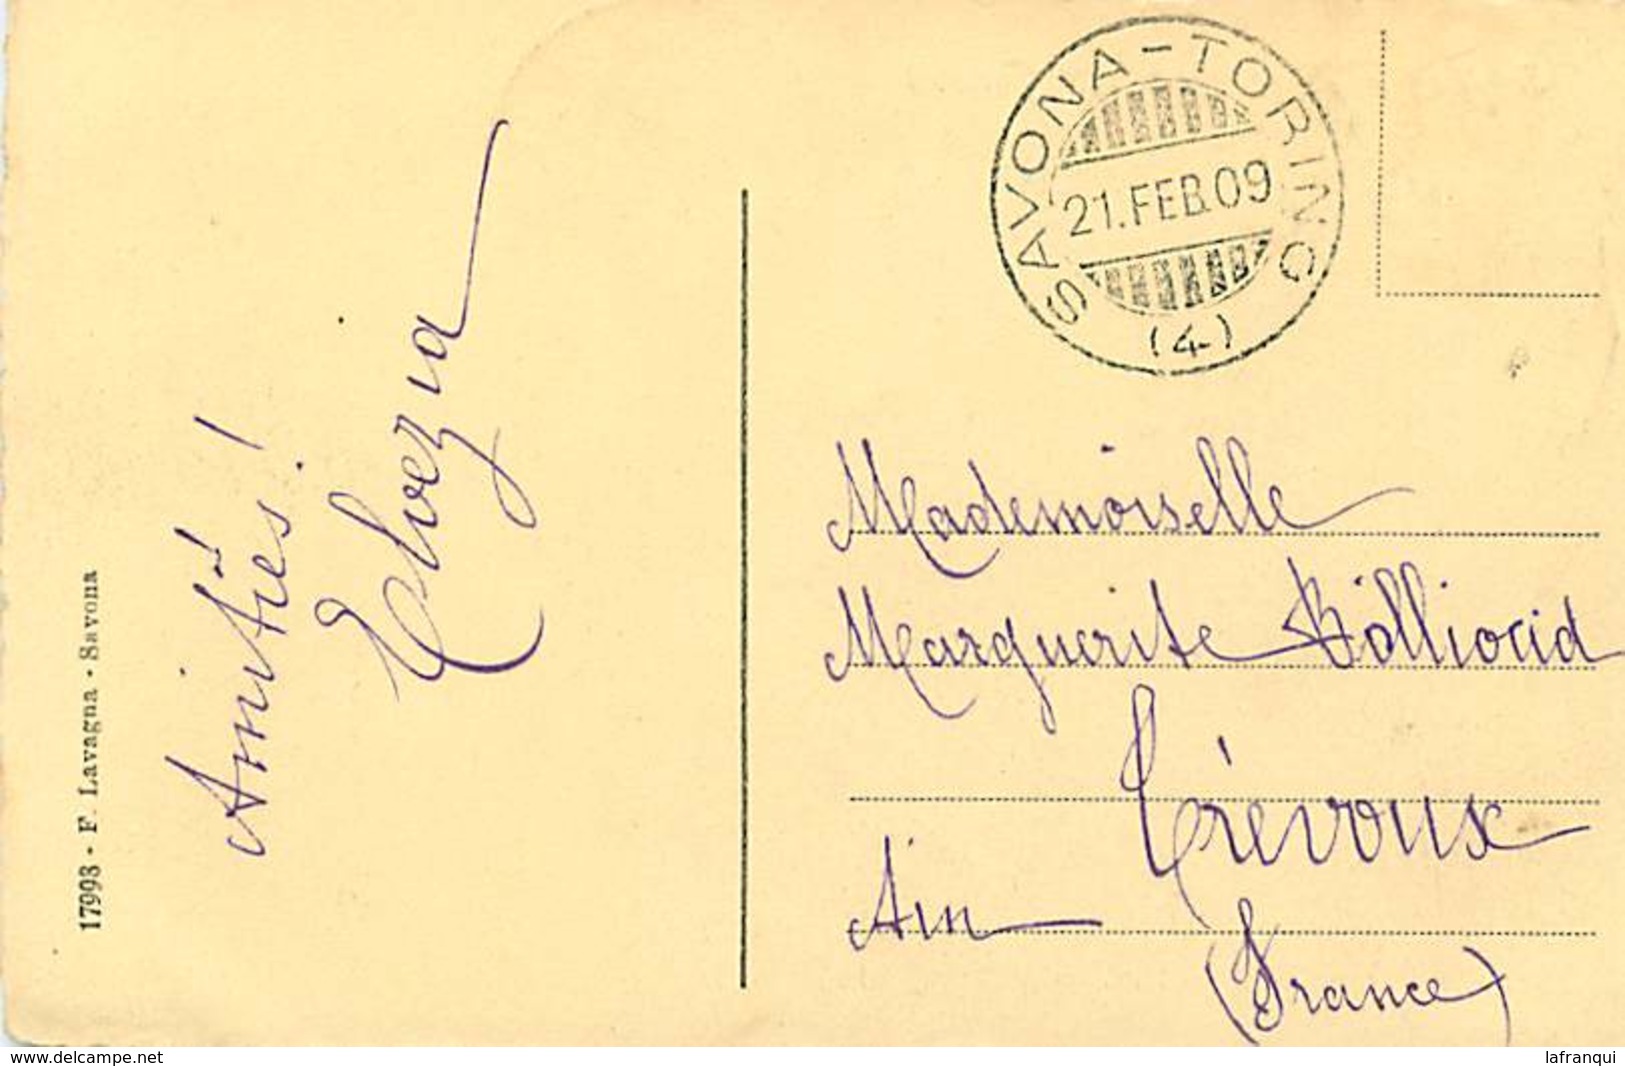 SAVONA-TORINO
21.FEB.09
(4)
Amitiés!
Elvezia
17993 - F. Lavagna - Savona
Mademoiselle
Marguerite Billioud
Trévoux
Ain
(France)
delcampe.net
lafranqui